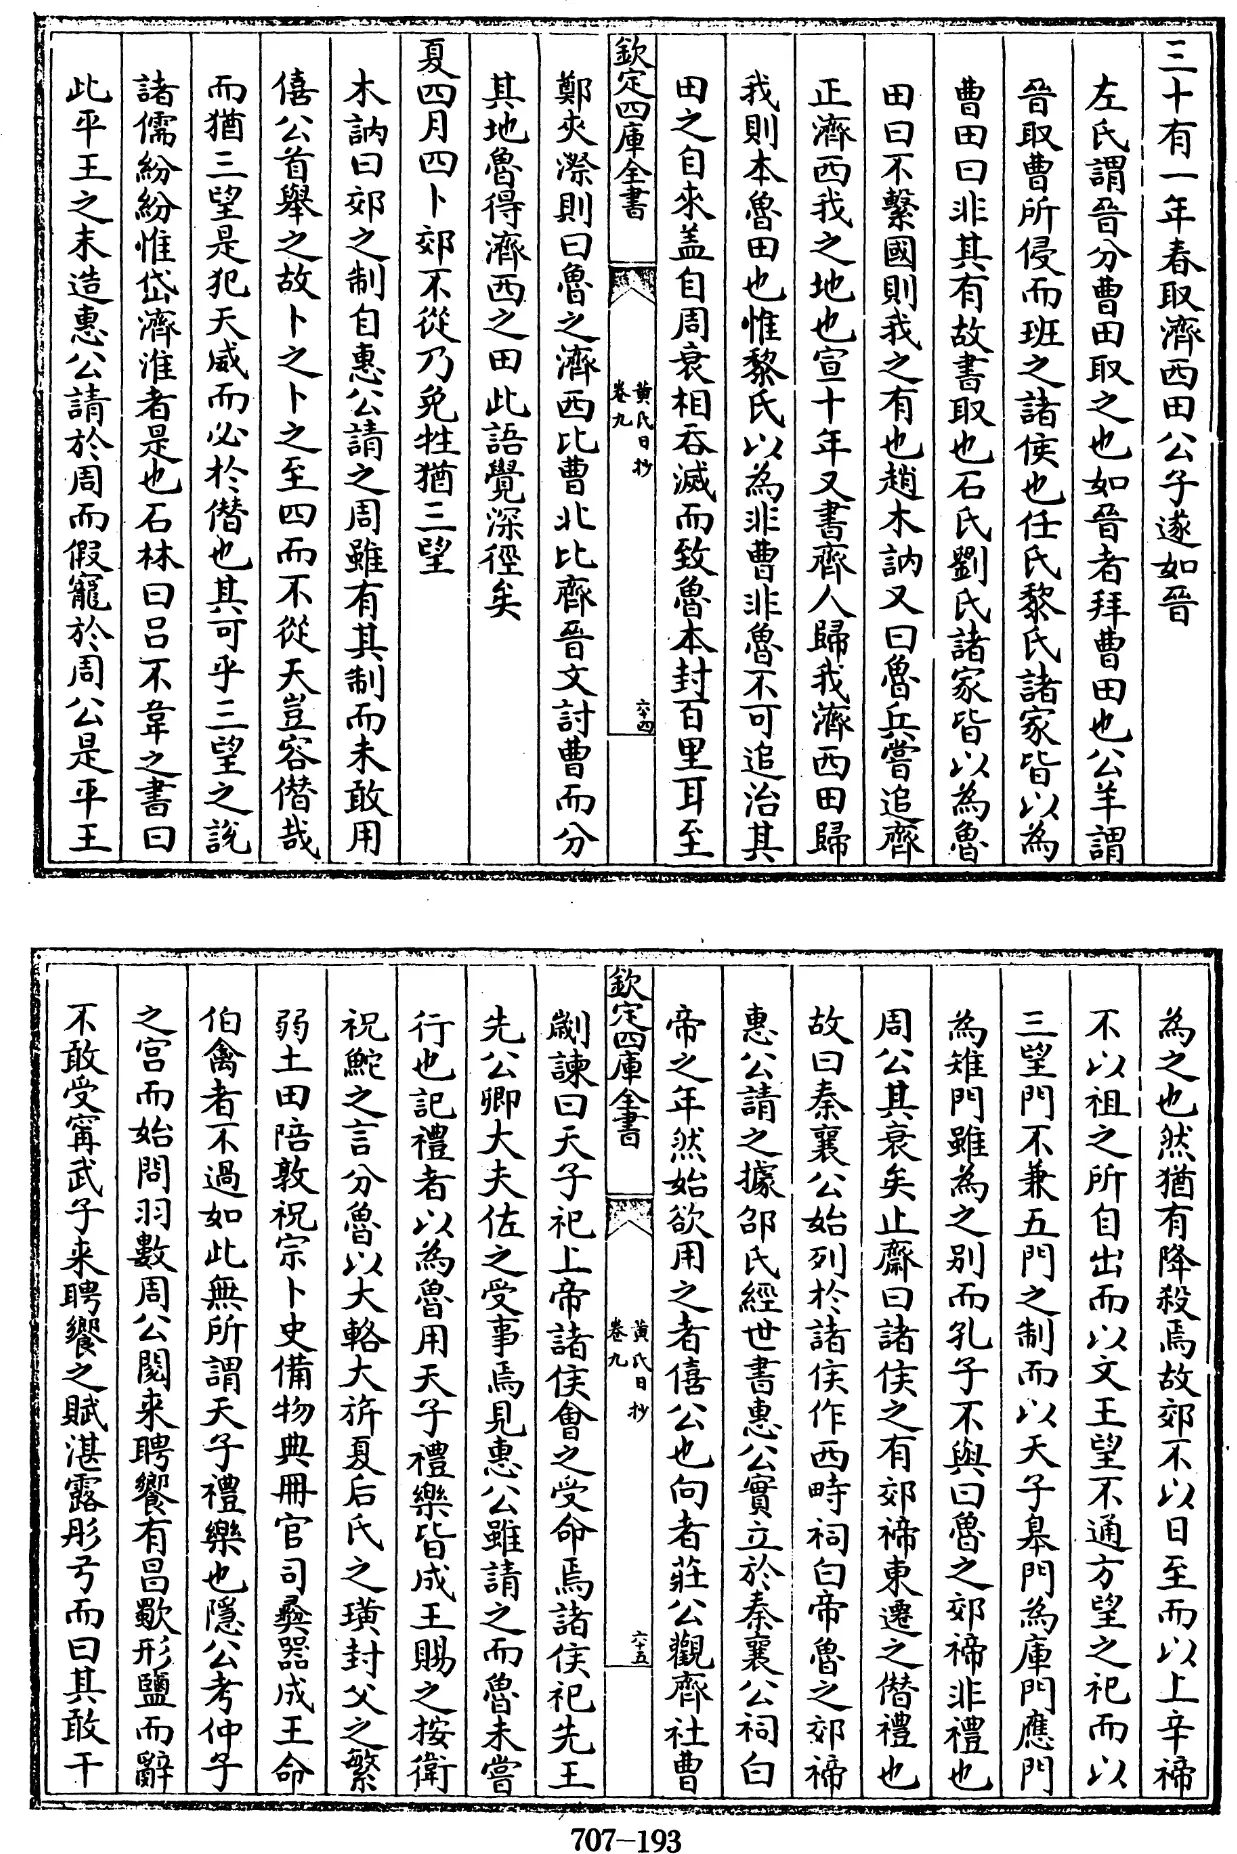 三十有一年春取濟西田公子遂如晉
左氏謂晉分曹田取之也如晉者拜曹田也公羊謂
晉取曹所侵而班之諸侯也任氏黎氏諸家皆以為
曹田曰非其有故書取也石氏劉氏諸家皆以為魯
田曰不繫國則我之有也趙木訥又曰魯兵嘗追齊
正濟西我之地也宣十年又書齊人歸我濟西田歸
我則本魯田也惟黎氏以為非曹非魯不可追治其
田之自來盖自周衰相吞滅而致魯本封百里耳至
欽定四庫全書
黄氏日抄
卷九
六十四
鄭夾漈則曰魯之濟西比曹北比齊晉文討曹而分
其地魯得濟西之田此語覺深徑矣
夏四月四卜郊不從乃免牲猶三望
木訥曰郊之制自惠公請之周雖有其制而未敢用
僖公首舉之故卜之卜之至四而不從天豈容僭哉
而猶三望是犯天威而必於僭也其可乎三望之說
諸儒紛紛惟岱濟淮者是也石林曰吕不韋之書曰
此平王之末造惠公請於周而假寵於周公是平王
為之也然猶有降殺焉故郊不以日至而以上辛禘
不以祖之所自出而以文王望不通方望之祀而以
三望門不兼五門之制而以天子皋門為庫門應門
為雉門雖為之别而孔子不與曰魯之郊禘非禮也
周公其衰矣止齋曰諸侯之有郊禘東遷之僭禮也
故曰秦襄公始列於諸侯作西畤祠白帝魯之郊禘
惠公請之據邵氏經世書惠公實立於秦襄公祠白
帝之年然始欲用之者僖公也向者莊公觀齊社曹
欽定四庫全書
黄氏日抄
卷九
六十五
劌諫曰天子祀上帝諸侯會之受命焉諸侯祀先王
先公卿大夫佐之受事焉見惠公雖請之而魯未嘗
行也記禮者以為魯用天子禮樂皆成王賜之按衛
祝鮀之言分魯以大輅大旂夏后氏之璜封父之繁
弱土田陪敦祝宗卜史備物典冊官司彝器成王命
伯禽者不過如此無所謂天子禮樂也隱公考仲子
之宫而始問羽數周公閱来聘饗有昌歜形鹽而辭
不敢受甯武子来聘饗之賦湛露彤弓而曰其敢干
707-193